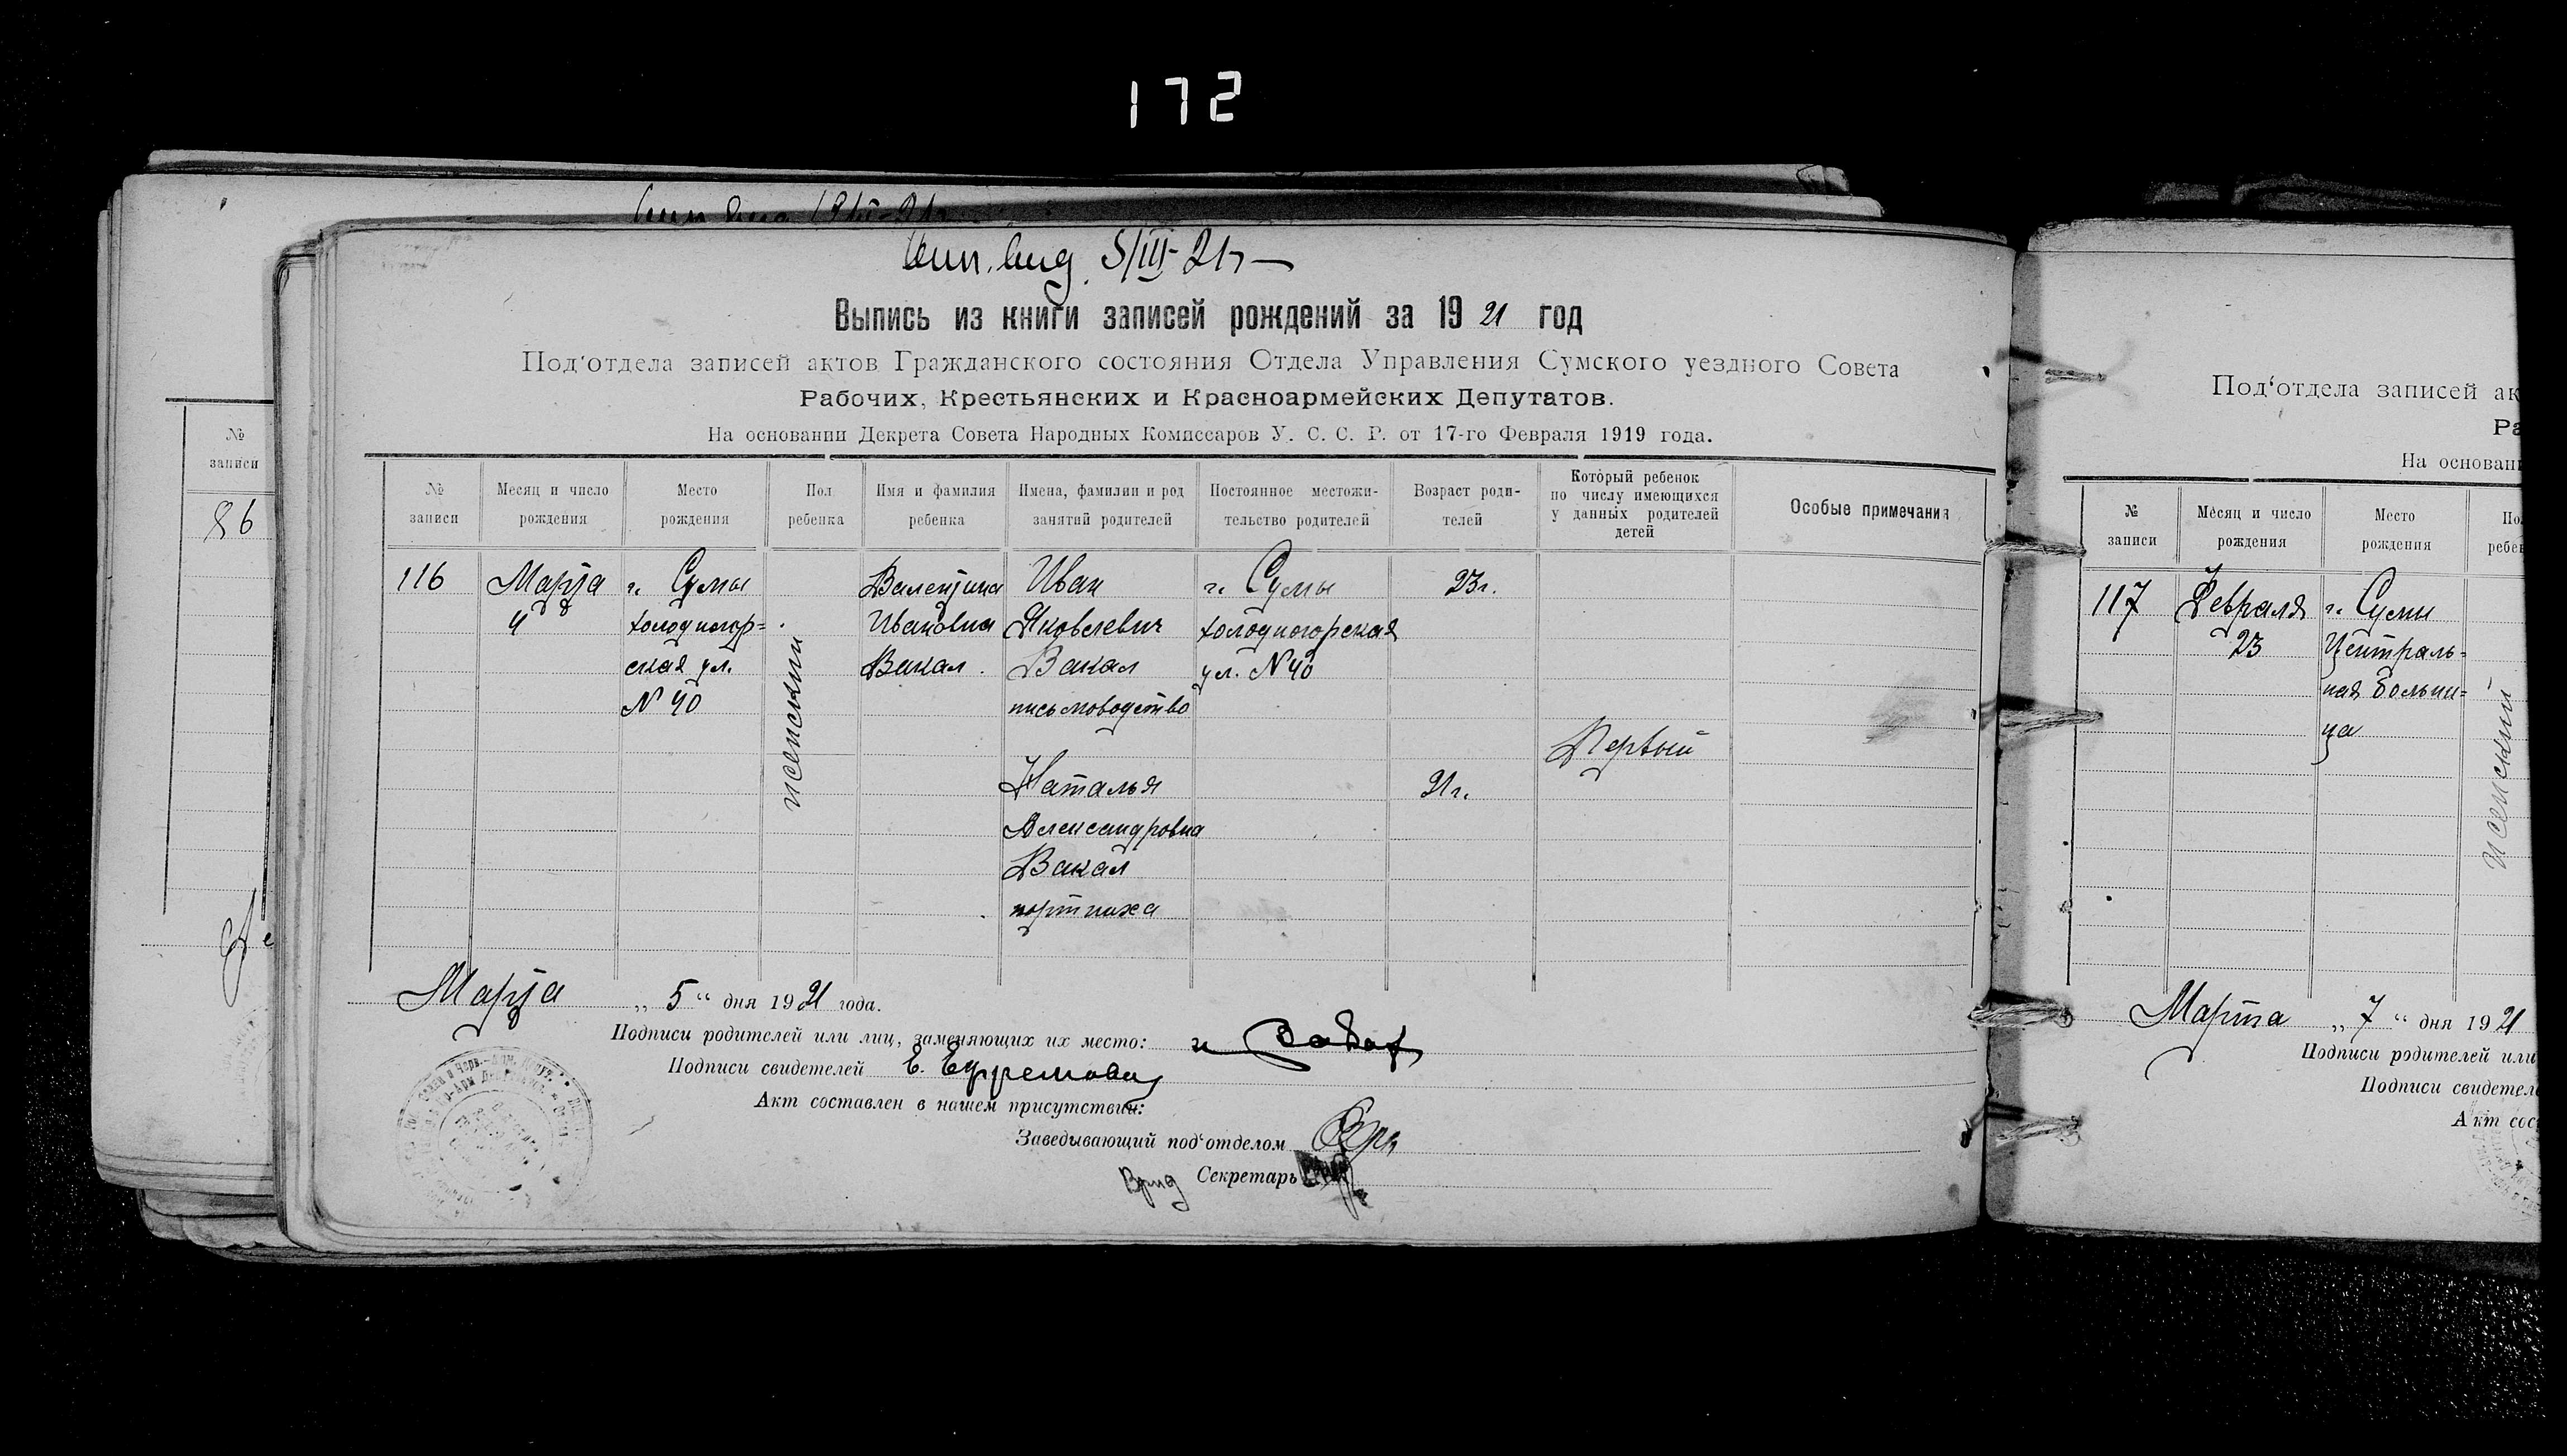 172
5/III-21г
Выпись из книги записей рождений за 1921 год
Под'отдела записей актов Гражданского состояния Отдела Управления Сумского уездного Совета
Рабочих, Крестьянских и Красноармейских Депутатов.
На основании Декрета Совета Народных Комиссаров У. С. С. Р. от 17-го Февраля 1919 года.
№ записи
Месяц и число рождения
Место рождения
Пол ребенка
Имя и фамилия ребенка
Имена, фамилии и род занятий родителей
Постоянное местожительство родителей
Возраст родителей
Который ребенок по числу имеющихся у данных родителей детей
Особые примечания
116
Марта
4
г. Сумы
холодногор=
ская ул.
N 40
женский
Валентина
Ивановна
Вакал.
Иван
Яковлевич
Вакал
письмоводство
Наталья
Александровна
Вакал
портниха
г. Сумы
холодногорская
ул. N 40
23г.
21г.
Первый
Марта „ 5 “ дня 1921 года.
Подписи родителей или лиц, заменяющих их место:
Подписи свидетелей Е. Ефремова
Акт составлен в нашем присутствии:
Заведывающий под'отделом
Врид Секретарь
№
записи
86
Под'отдела записей ак
Ра
На основани
№ записи
Месяц и число рождения
Место рождения
По
ребен
117
Февраля
23
г. Сумы
Централь=
ная больни=
ца
женский
Марта „ 7 “ дня 1921
Подписи родителей или
Подписи свидетел
Акт сос